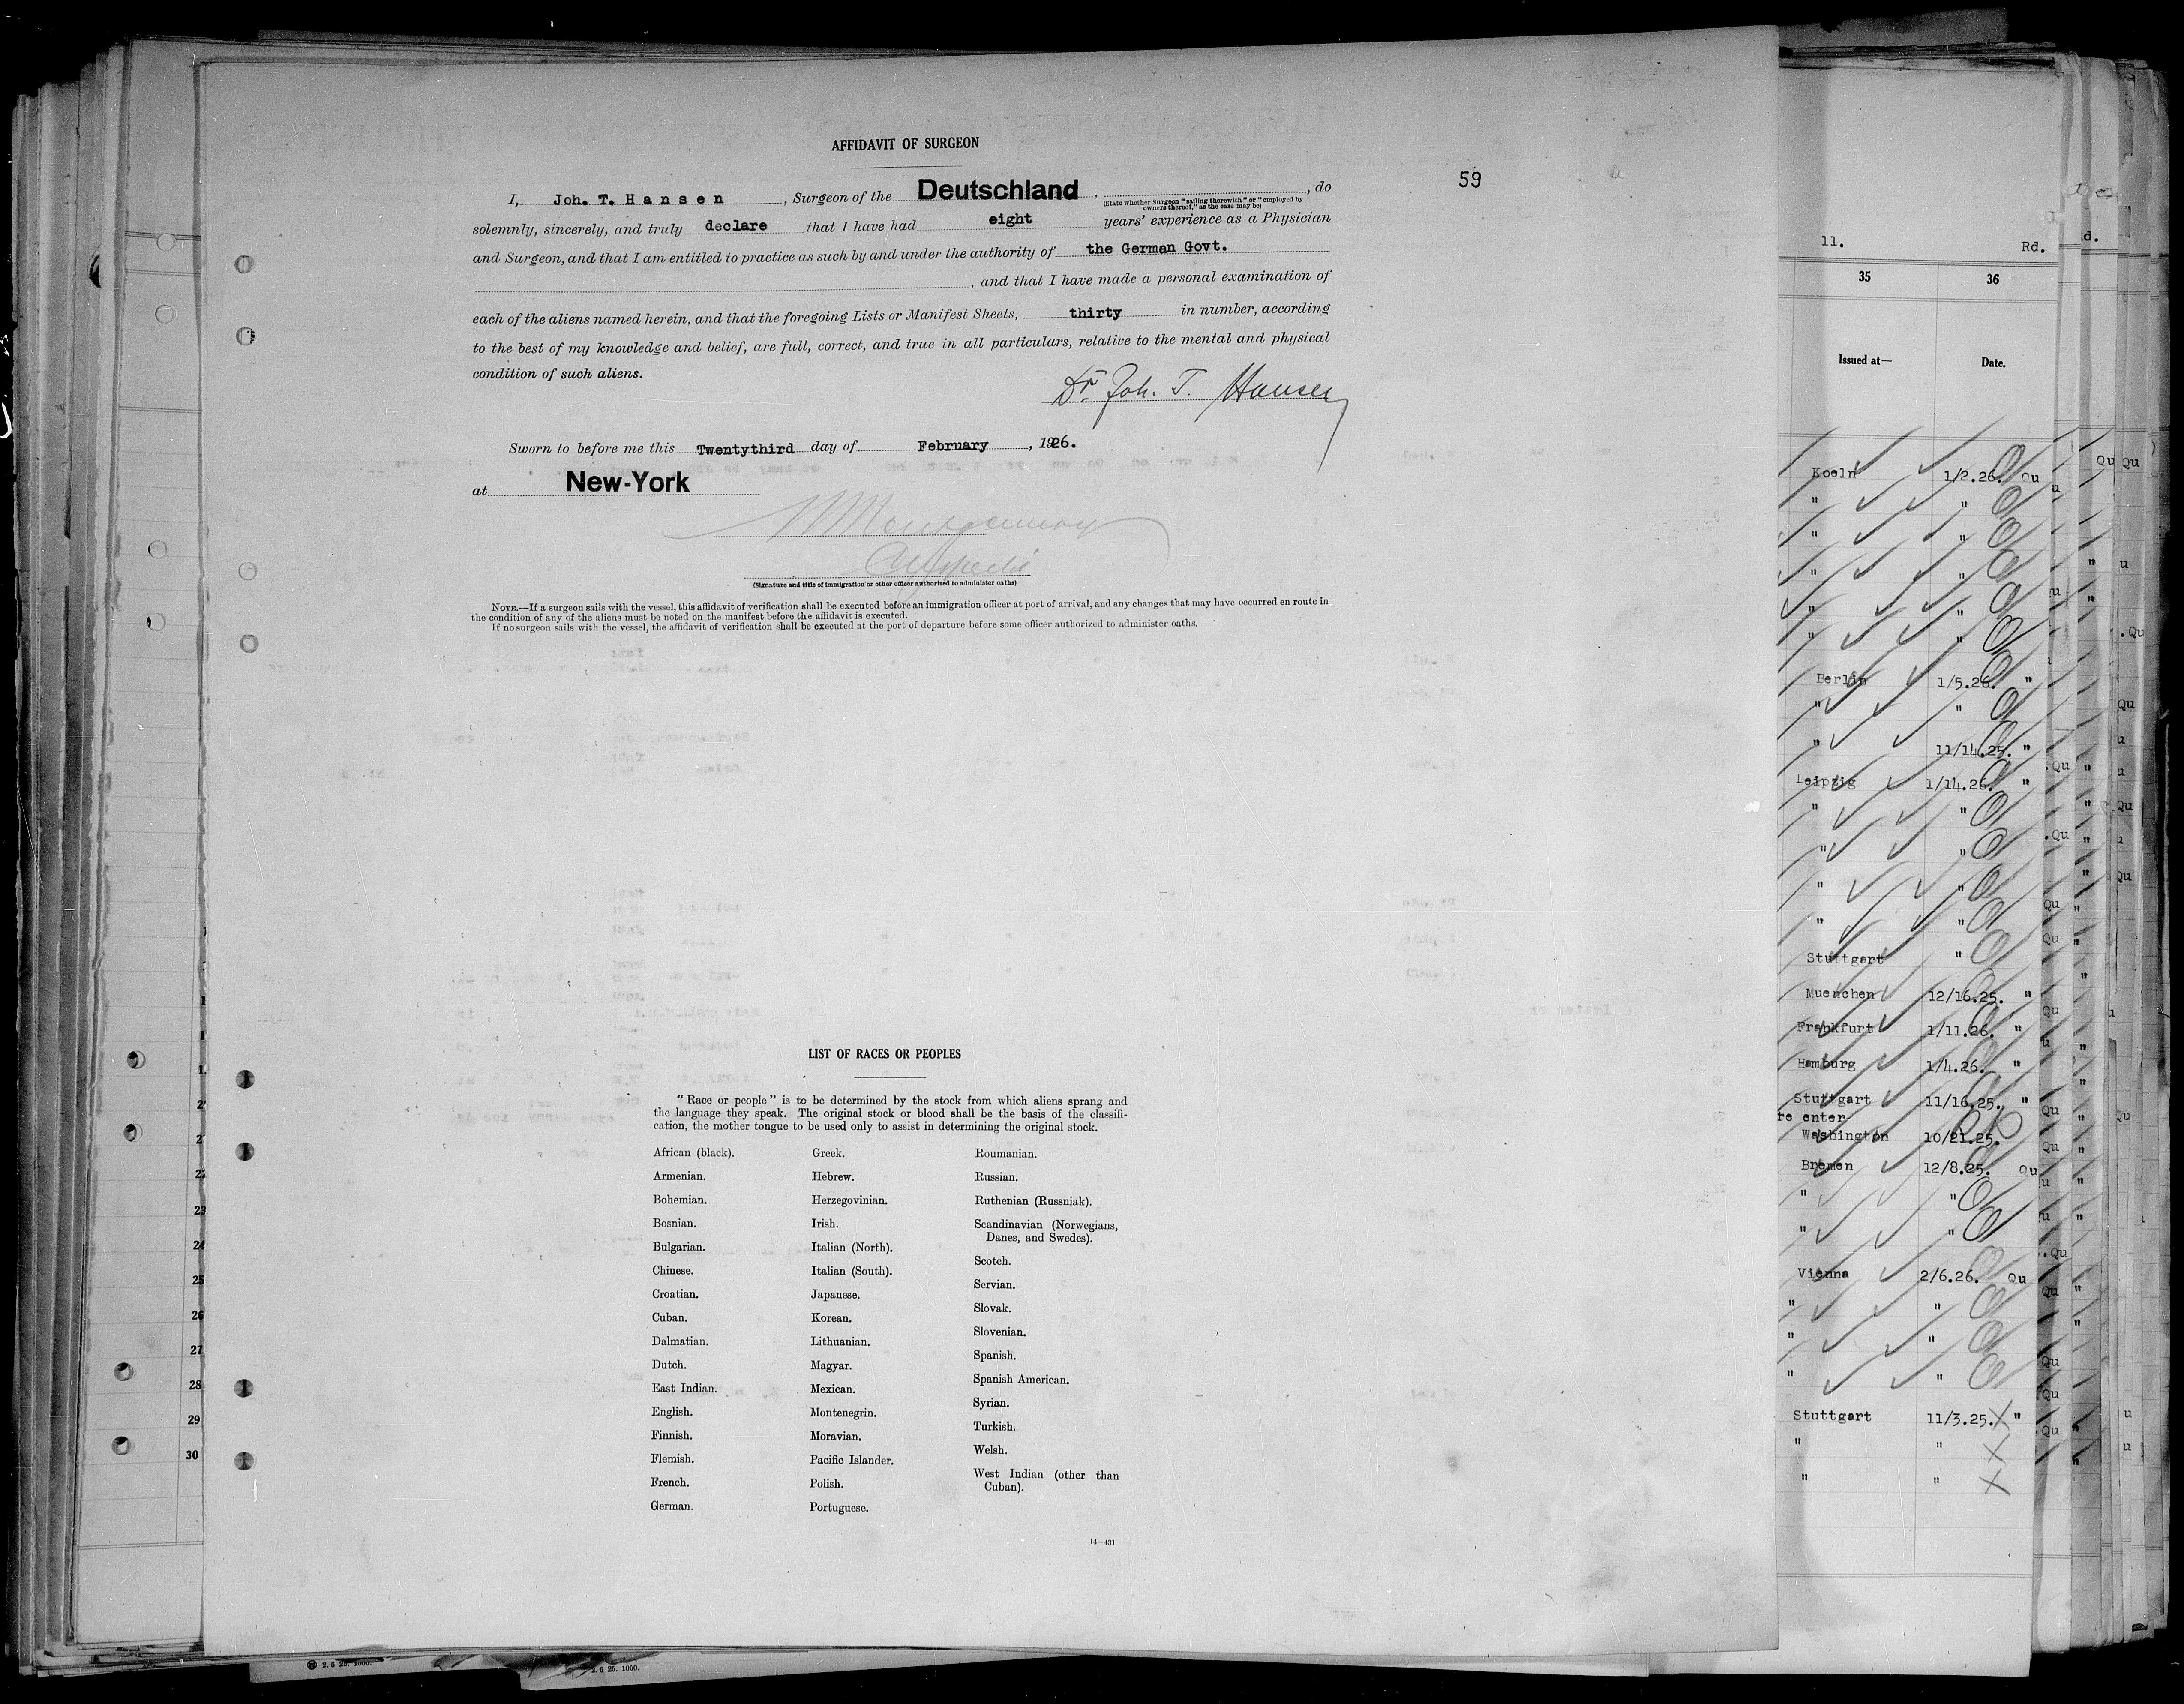 AFFIDAVIT OF SURGEON
59
I, Joh. T. Hansen, Surgeon of the Deutschland, , do
(State whether Surgeon "sailing therewith" or "employed by
owners thereof," as the case may be)
solemnly, sincerely, and truly declare that I have had eight years' experience as a Physician
and Surgeon, and that I am entitled to practice as such by and under the authority of the German Govt.
, and that I have made a personal examination of
each of the aliens named herein, and that the foregoing Lists or Manifest Sheets, thirty in number, according
to the best of my knowledge and belief, are full, correct, and true in all particulars, relative to the mental and physical
condition of such aliens.
Dr. Joh. T. Hansen
Sworn to before me this Twentythird day of February, 1926.
at New-York
Montgomery
(Signature and title of immigration or other officer authorized to administer oaths)
NOTE.—If a surgeon sails with the vessel, this affidavit of verification shall be executed before an immigration officer at port of arrival, and any changes that may have occurred en route in
the condition of any of the aliens must be noted on the manifest before the affidavit is executed.
If no surgeon sails with the vessel, the affidavit of verification shall be executed at the port of departure before some officer authorized to administer oaths.
LIST OF RACES OR PEOPLES
"Race or people" is to be determined by the stock from which aliens sprang and
the language they speak. The original stock or blood shall be the basis of the classifi-
cation, the mother tongue to be used only to assist in determining the original stock.
African (black).
Armenian.
Bohemian.
Bosnian.
Bulgarian.
Chinese.
Croatian.
Cuban.
Dalmatian.
Dutch.
East Indian.
English.
Finnish.
Flemish.
French.
German.
Greek.
Hebrew.
Herzegovinian.
Irish.
Italian (North).
Italian (South).
Japanese.
Korean.
Lithuanian.
Magyar.
Mexican.
Montenegrin.
Moravian.
Pacific Islander.
Polish.
Portuguese.
Roumanian.
Russian.
Ruthenian (Russniak).
Scandinavian (Norwegians,
Danes, and Swedes).
Scotch.
Servian.
Slovak.
Slovenian.
Spanish.
Spanish American.
Syrian.
Turkish.
Welsh.
West Indian (other than
Cuban).
14—431
23
24
25
26
27
28
29
30
11. Rd.
35 36
Issued at— Date.
Koeln 1/2.26. Qu
" "
" "
" "
" "
" "
Berlin 1/5.26. "
" "
" 11/14.25. "
Leipzig 1/14.26. "
" "
" "
" "
" "
Stuttgart "
Muenchen 12/16.25. "
Frankfurt 1/11.26. "
Hamburg 1/4.26. "
Stuttgart 11/16.25. "
re enter
Washington 10/21.25.
Bremen 12/8.25. Qu
" "
" "
Vienna 2/6.26. Qu
" "
" "
" "
Stuttgart 11/3.25. X "
" " X
" " X
2. 6 25. 1000.
2. 6 25. 1000.